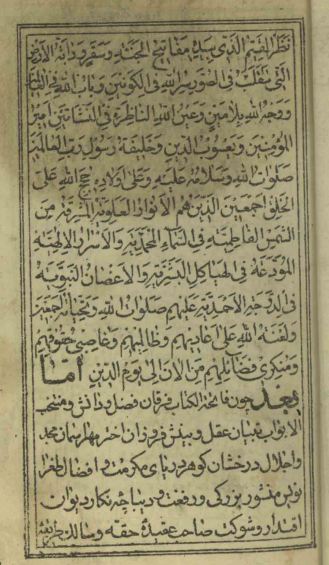 نظر القیّم الذی بیده مفاتیح الجنة وسقر ودابة الارض
التی یتقلب فی الصور سر الله فی الکونین وباب الله فی
ووجه الله بلا مین وعین الله الناظرة فی النشأتین امیر
المؤمنین ویعسوب الدین وخلیفة رسول رب العالمین
صلوات الله وسلامه علیه وعلی اولاده حجج الله علی
الخلق اجمعین الذین هم الانوار العلویة المشرقة من
الشمس الفاطمیة فی السماء المحمدیة والاسرار الالهیة
المودعة فی الهیاکل البشریة والاغصان النبویة
فی الدوحة الاحمدیة علیهم صلوات الله وتحیاته اجمعین
ولعنة الله علی اعادیهم وظالمیهم وغاصبی حقوقهم
ومنکری فضائلهم من الان الی یوم الدین اما
بعد چون فاتحة الکتاب فرقان فضل و دانش و منتخب
الابواب تبیان عقل و بینش فروزان اختر بهار مجد
و اجلال درخشان کوهر دریای مکرمت و افضال طغرا
نویس منشور بزرکی و رفعت و دیباچه نکار دیوان
اقتدار و شوکت صاحب عقیدهٔ حقه و سالک طریقه